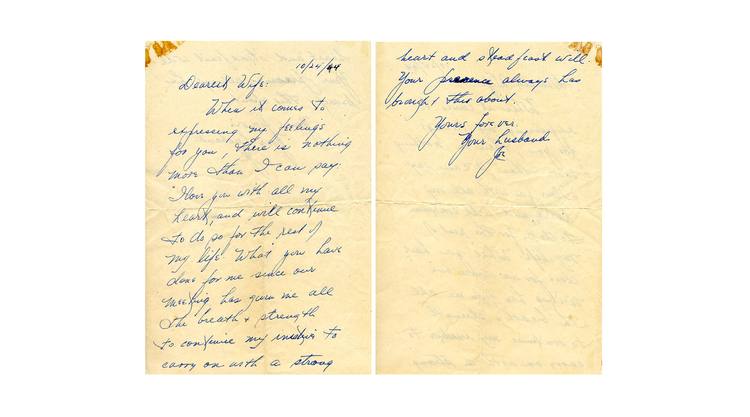 10/24/44
Dearest Wife:
When it comes to
expressing my feelings
for you, there is nothing
more than I can say:
"I love you with all my
heart, and will continue
to do so for the rest of
my life. What you have
done for me since our
meeting has given me all
the breath & strength
to continue my to
carry on with a strong
heart and steadfast will.
Your presence always has
brought this about.
Yours forever
Your husband
Joe